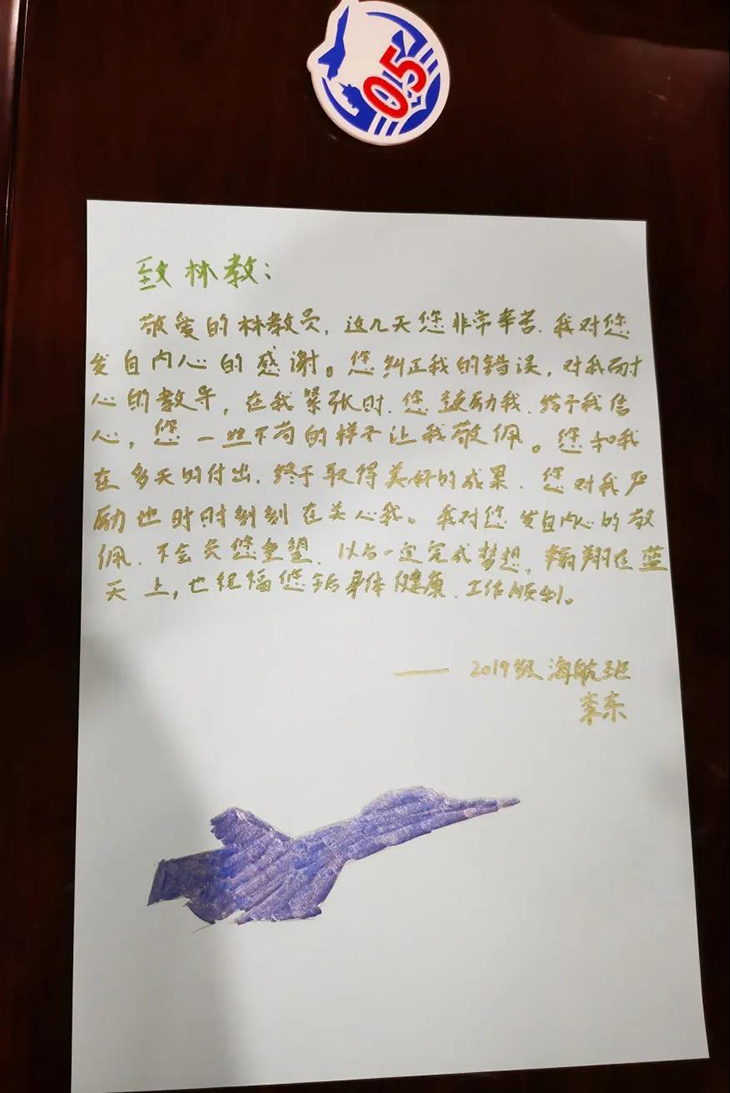 05
致林教:
敬爱的林教员,这几天您非常辛苦.我对您
发自内心的感谢。您纠正我的错误,对我耐
心的教导,在我紧张时.您鼓励我.给予我信
心,您一丝不苟的样子让我敬佩。您和我
在多天的付出.终于取得美好的成果.您对我严
励也时时刻刻在关心我。我对您发自内心的敬
佩.不会负您重望.以后一定完成梦想,翱翔在蓝
天上,也祝福您 身体健康.工作顺利。
—— 2019级海航班
李东